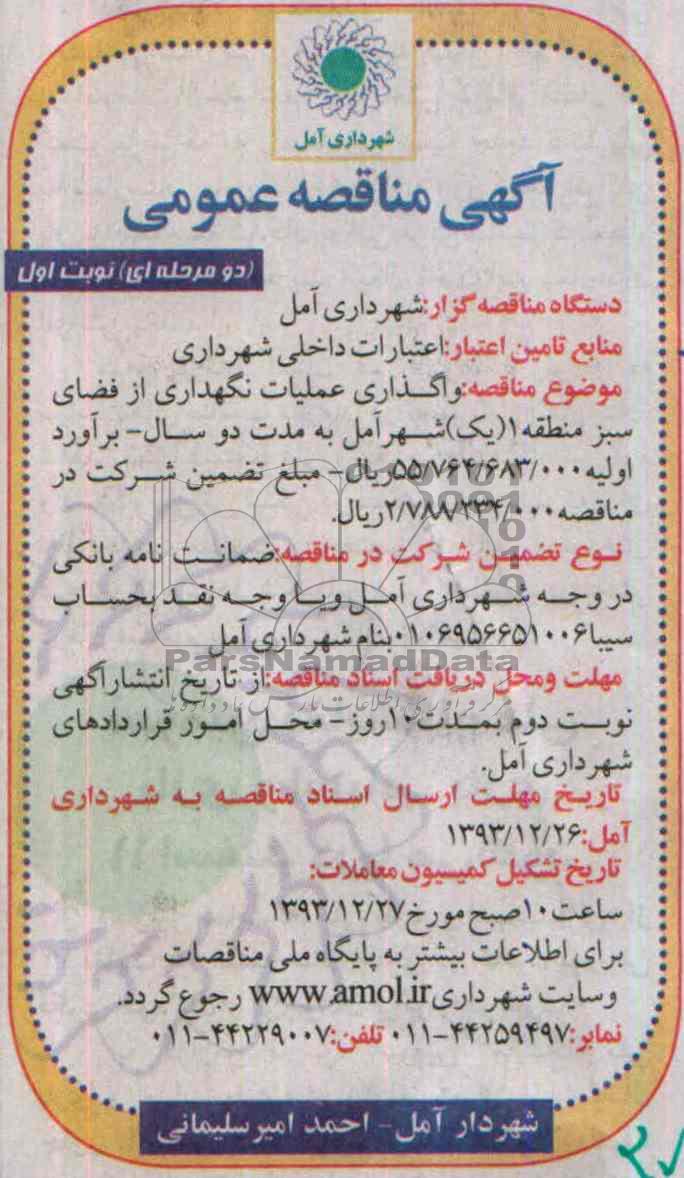 شهرداری آمل
آگهی مناقصه عمومی
(دو مرحله ای) نوبت اول
دستگاه مناقصه گزار:شهرداری آمل
منابع تامین اعتبار:اعتبارات داخلی شهرداری
موضوع مناقصه:واگذاری عملیات نگهداری از فضای
سبز منطقه۱(یک)شهرآمل به مدت دو سال- برآورد
اولیه۵۵/۷۶۴/۶۸۳/۰۰۰ریال- مبلغ تضمین شرکت در
مناقصه۲/۷۸۸/۲۳۴/۰۰۰ریال.
نوع تضمین شرکت در مناقصه:ضمانت نامه بانکی
در وجه شهرداری آمل ویا وجه نقد بحساب
سیبا۰۱۰۶۹۵۶۶۵۱۰۰۶بنام شهرداری آمل
ParsNamadData
مهلت ومحل دریافت اسناد مناقصه:از تاریخ انتشارآگهی
نوبت دوم بمدت۱۰روز- محل امور قراردادهای
شهرداری آمل.
تاریخ مهلت ارسال اسناد مناقصه به شهرداری
آمل:۱۳۹۳/۱۲/۲۶
تاریخ تشکیل کمیسیون معاملات:
ساعت۱۰صبح مورخ۱۳۹۳/۱۲/۲۷
برای اطلاعات بیشتر به پایگاه ملی مناقصات
وسایت شهرداریwww.amol.ir رجوع گردد.
نمابر:۴۴۲۵۹۴۹۷-۰۱۱ تلفن:۴۴۲۲۹۰۰۷-۰۱۱
شهردار آمل- احمد امیرسلیمانی